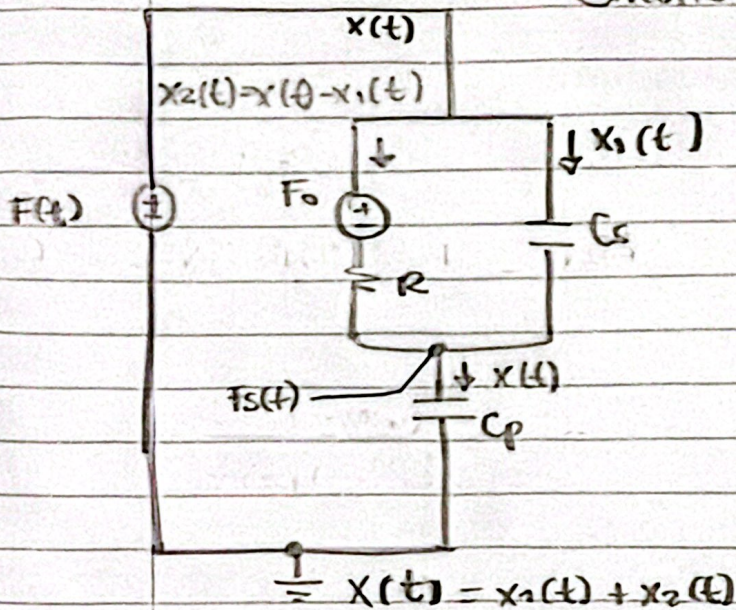 x(t)
x2(t)=x(t)-x1(t)
x1(t)
F(t)
±
F0
+
Cs
R
x(t)
Fs(t)
Cp
x(t) = x1(t) + x2(t)